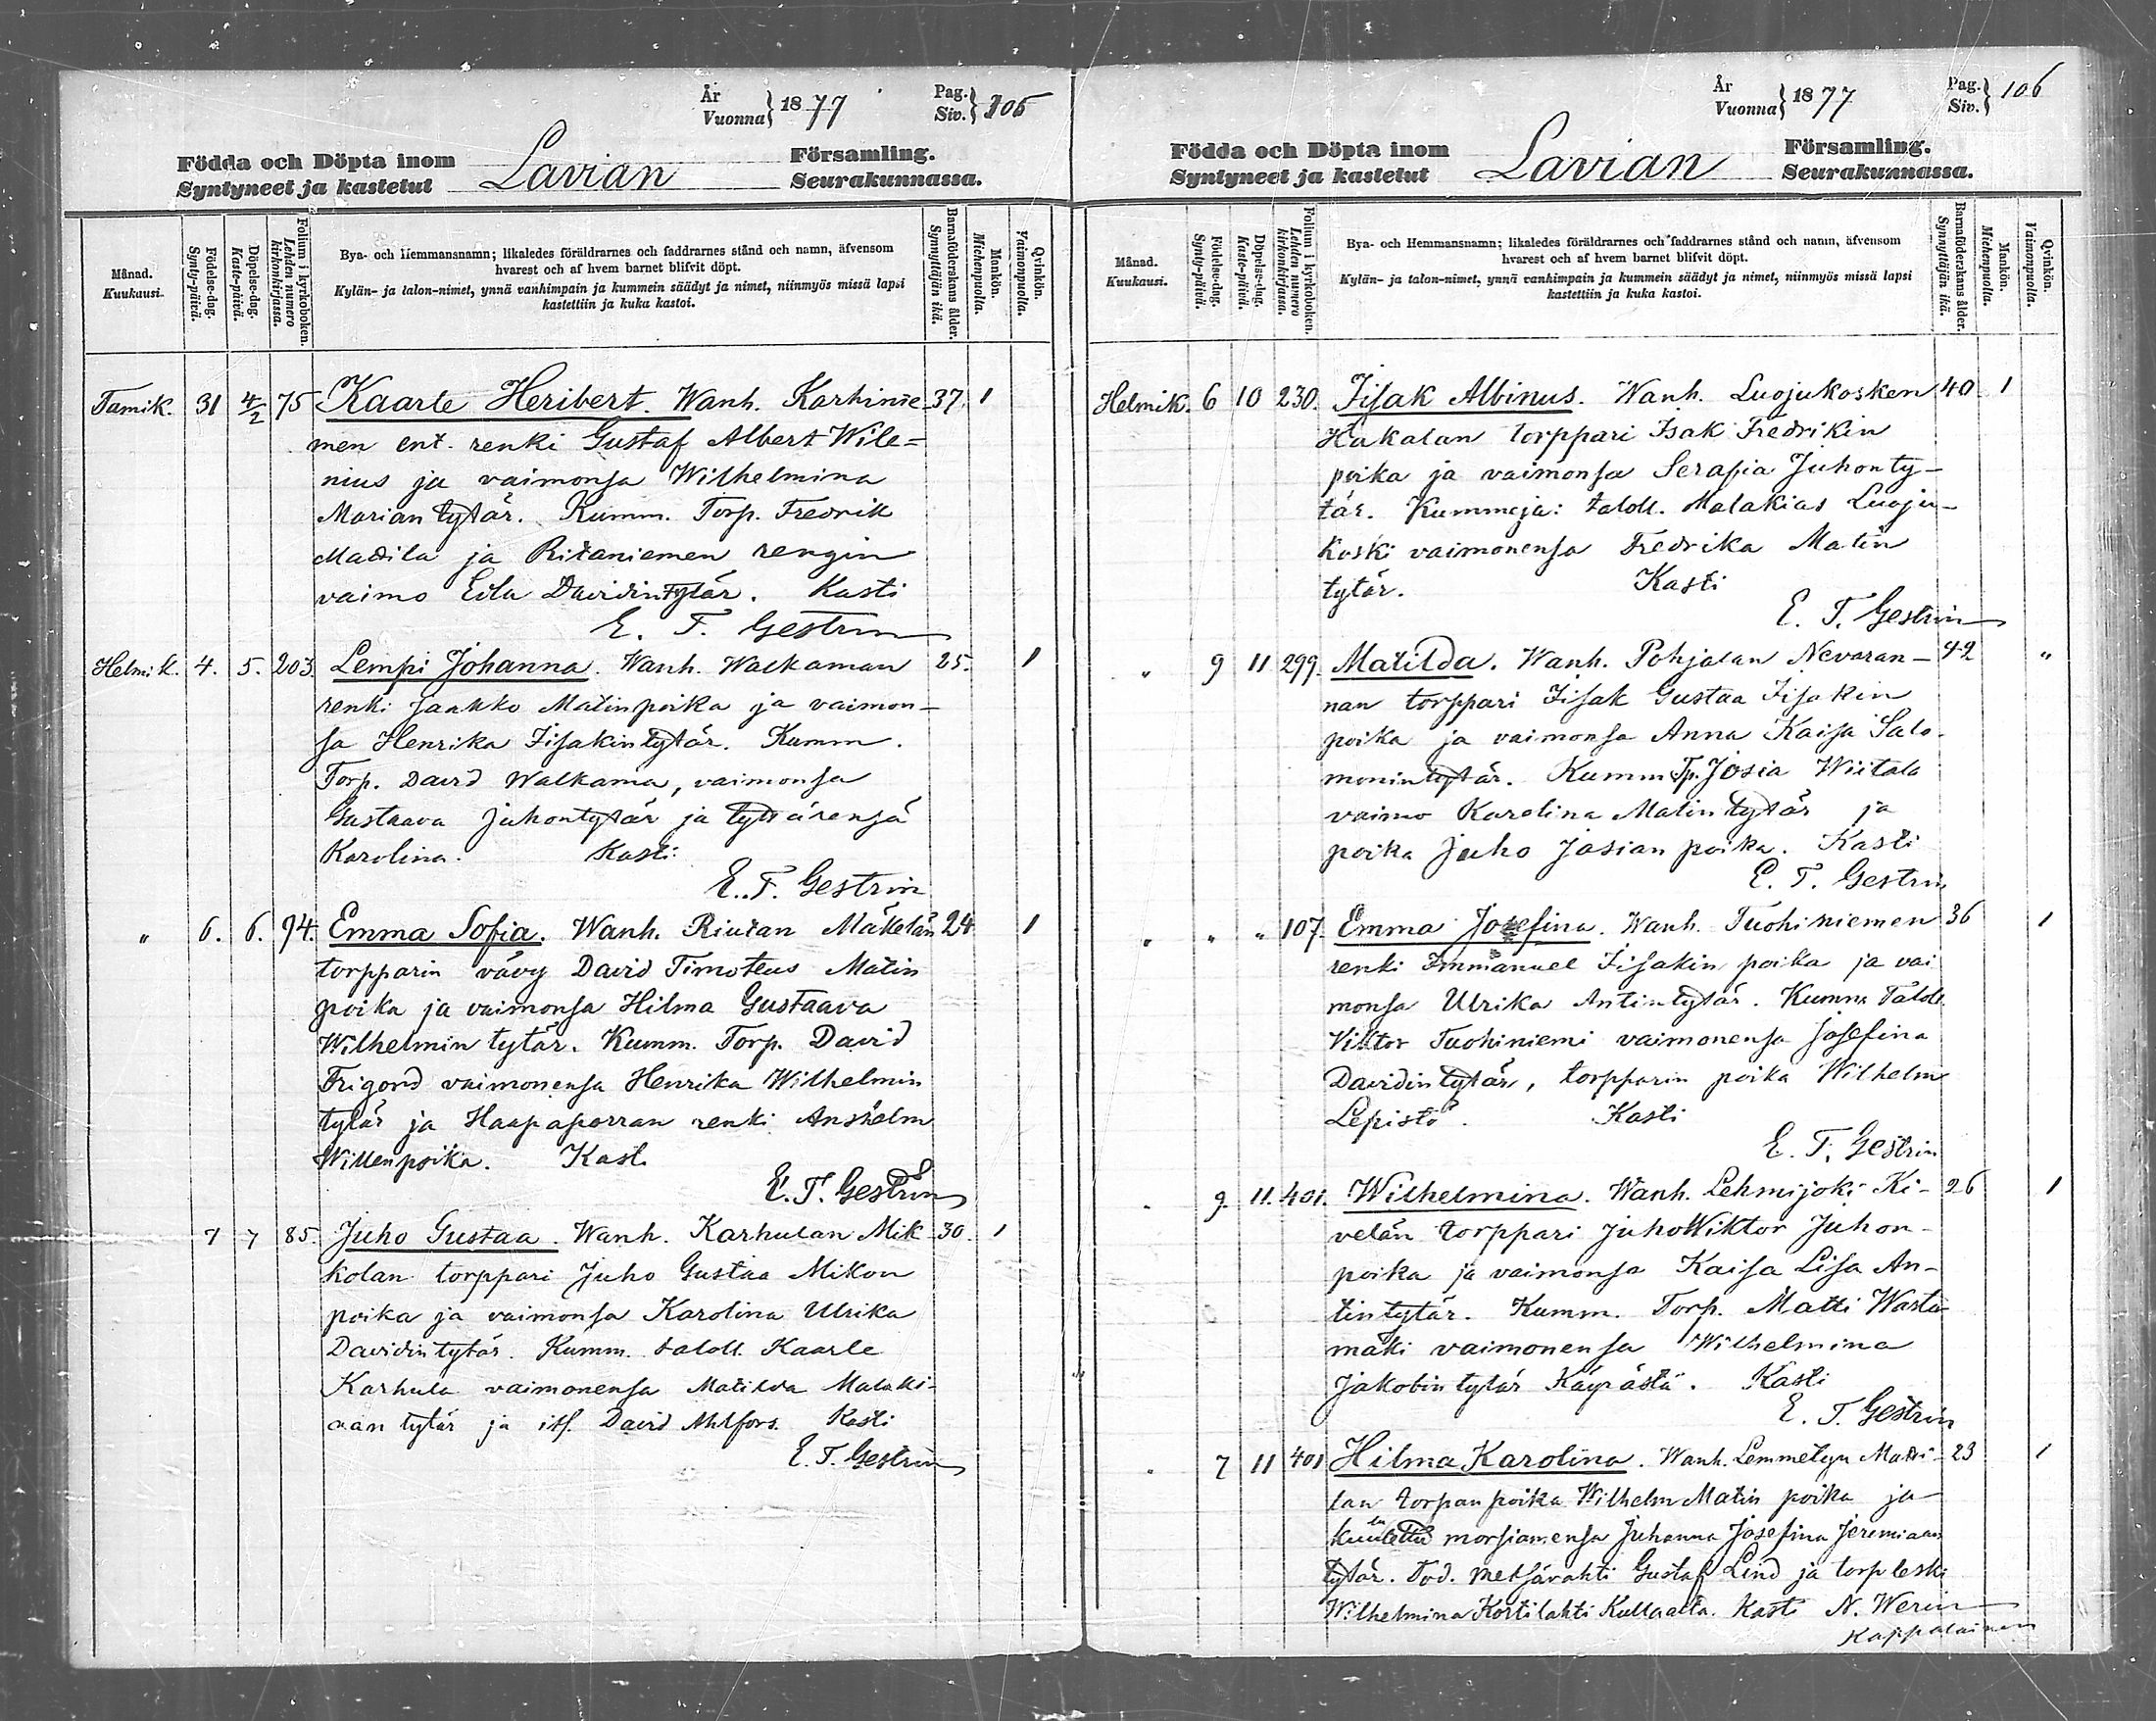 År
Vuonna } 1877
Pag.
Siv. } 105
Födda och Döpta inom
Syntyneet ja kastetut
Lavian
Församling.
Seurakunnassa.
Månad.
Kuukausi.
Födelse-dag.
Synty-päivä.
Döpelse-dag.
Kaste-päivä.
Folium i kyrkoboken.
Lehden numero kirkonkirjassa.
Bya- och Hemmansnamn; likaledes föräldrarnes och faddrarnes stånd och namn, äfvensom
hvarest och af hvem barnet blifvit döpt.
Kylän- ja talon-nimet, ynnä vanhimpain ja kummein säädyt ja nimet, niinmyös missä lapsi
kastettiin ja kuka kastoi.
Barnaföderskans ålder.
Synnyttäjän ikä.
Mankön.
Miehenpuolta.
Qvinkön.
Vaimonpuolta.
Tamik. 31 4/2 75 Kaarle Heribert. Wanh. Karhinie 37. 1
men ent. renki Gustaf Albert Wile-
nius ja vaimonsa Wilhelmina
Marian tytär. Kumm. Torp. Fredrik
Mattila ja Ritaniemen rengin
vaimo Eva Davidintytär. Kasti
E. T. Gestrin
Helmik. 4. 5. 203. Lempi Johanna. Wanh. Walkaman 25. 1
renki Jaakko Matinpoika ja vaimon-
sa Henrika Iisakintytär. Kumm.
Torp. David Walkama, vaimonsa
Gustaava Juhontytär ja tyttärensä
Karolina. Kasti
E. T. Gestrin
" 6. 6. 94. Emma Sofia. Wanh. Riutan Mäkelän 24. 1
torpparin vävy David Timoteus Matin
poika ja vaimonsa Hilma Gustaava
Wilhelmin tytär. Kumm. Torp. David
Frigord vaimonensa Henrika Wilhelmin
tytär ja Haapaporran renki Anshelm
Willenpoika. Kasti
E. T. Gestrin
7 7 85. Juho Gustaa. Wanh. Karhulan Mik 30. 1
kolan torppari Juho Gustaa Mikon
poika ja vaimonsa Karolina Ulrika
Davidin tytär. Kumm. taloll. Kaarle
Karhula vaimonensa Matilda Malaki-
aan tytär ja its. David Ahlfors. Kasti
E. T. Gestrin
År
Vuonna } 1877
Pag.
Siv. } 106
Födda och Döpta inom
Syntyneet ja kastetut
Lavian
Församling.
Seurakunnassa.
Månad.
Kuukausi.
Födelse-dag.
Synty-päivä.
Döpelse-dag.
Kaste-päivä.
Folium i kyrkoboken.
Lehden numero kirkonkirjassa.
Bya- och Hemmansnamn; likaledes föräldrarnes och faddrarnes stånd och namn, äfvensom
hvarest och af hvem barnet blifvit döpt.
Kylän- ja talon-nimet, ynnä vanhimpain ja kummein säädyt ja nimet, niinmyös missä lapsi
kastettiin ja kuka kastoi.
Barnaföderskans ålder.
Synnyttäjän ikä.
Mankön.
Miehenpuolta.
Qvinkön.
Vaimonpuolta.
Helmik. 6 10 230. Iisak Albinus. Wanh. Luojukosken 40 1
Hakalan torppari Isak Fredrikin
poika ja vaimonsa Serafia Juhonty-
tär. Kummeja: taloll. Malakias Luoju-
koski vaimonensa Fredrika Matin
tytär. Kasti
E. T. Gestrin
" 9 11 299. Matilda. Wanh. Pohjalan Nevaran- 42 "
nan torppari Iisak Gustaa Iisakin
poika ja vaimonsa Anna Kaisa Salo-
monintytär. Kumm. Tp. Josia Wiitala
vaimo Karolina Matin tytär ja
poika Juho Josian poika. Kasti
E. T. Gestrin
" " " 107. Emma Josefina. Wanh. Tuohiniemen 36 1
renki Immanuel Iisakin poika ja vai
monsa Ulrika Antintytär. Kumm Taloll.
Viktor Tuohiniemi vaimonensa Josefina
Davidin tytär, torpparin poika Wilhelm
Lepistö. Kasti
E. T. Gestrin
" 9. 11. 401. Wilhelmina. Wanh. Lehmijoki Ki- 26 1
velän torppari Juho Wiktor Juhon-
poika ja vaimonsa Kaisa Lisa An-
tintytär. Kumm. Torp. Matti Wasta
mäki vaimonensa Wilhelmina
Jakobin tytär Käyrästä. Kasti
E. T. Gestrin
" 7 11 401 Hilma Karolina. Wanh. Lemmetyn Matti- 23 1
lan torpan poika Wilhelm Matin poika ja
kuulutettu morsiamensa Juhanna Josefina Jeremiaan
tytär. Tod. metsävahti Gustaf Lind ja torp leski
Wilhelmina Kortilahti Kullaalta. Kasti N. Werin
Kappalainen